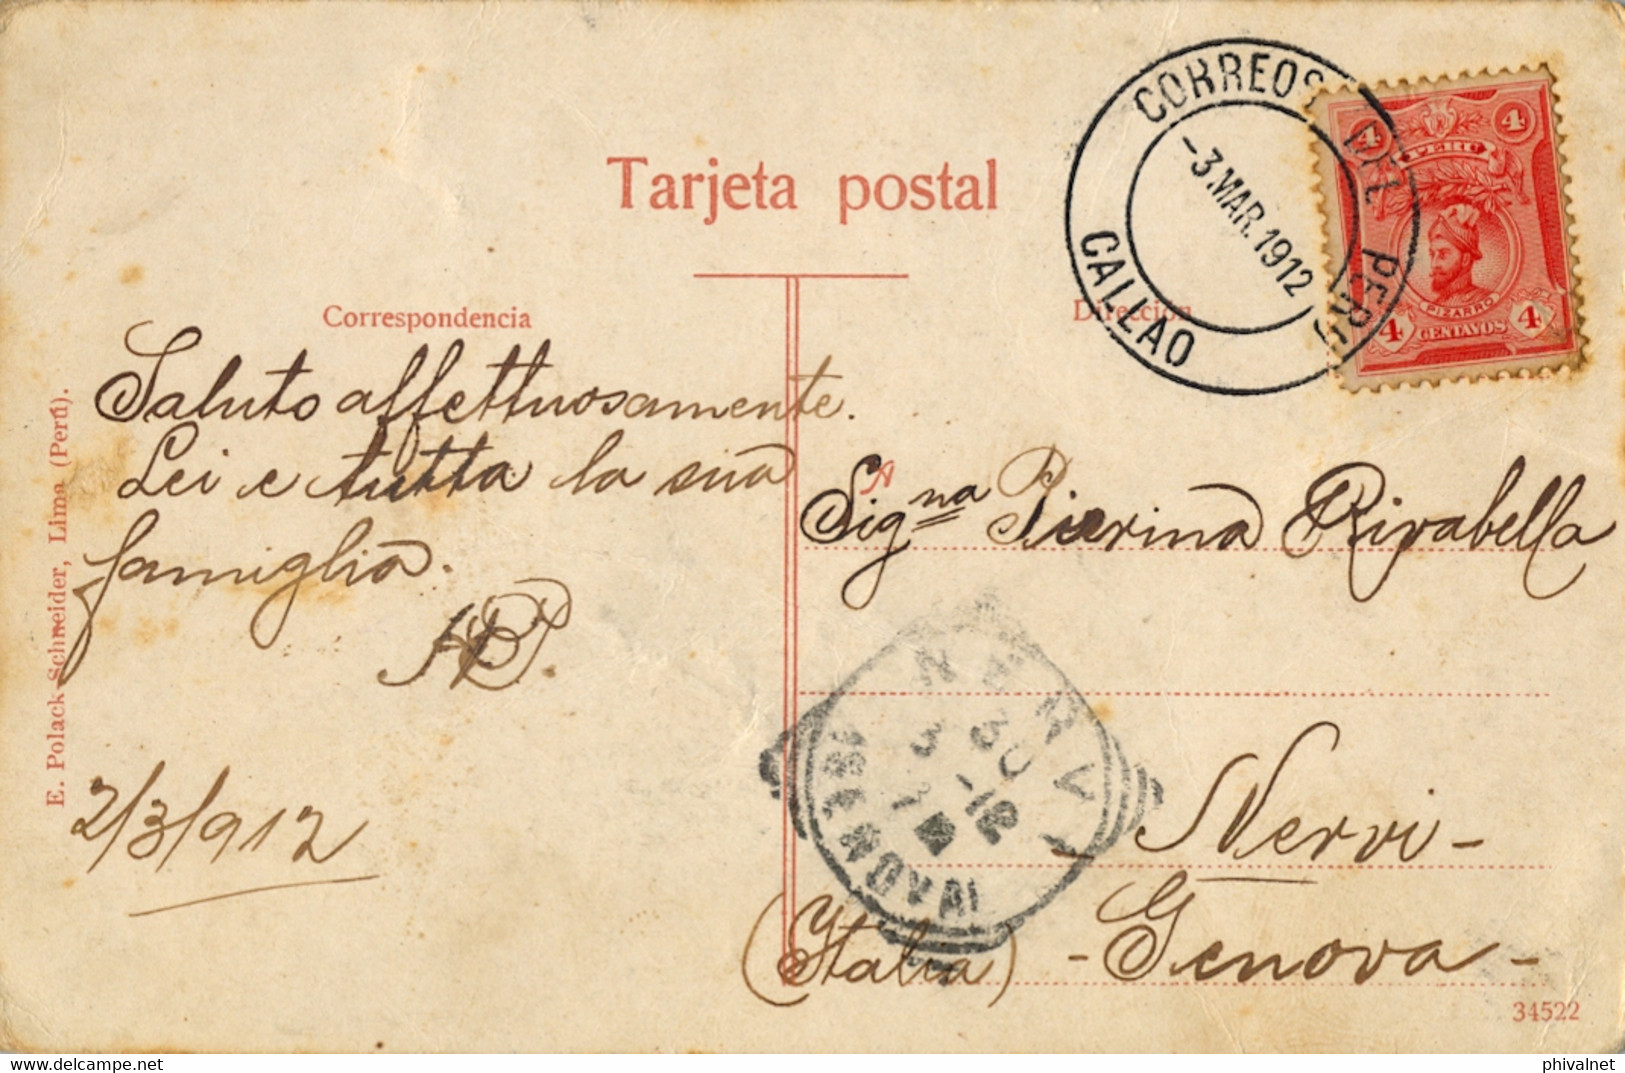 Tarjeta postal
CORREOS DEL PERU
-3.MAR.1912
CALLAO
4 4
PERU
PIZARRO
4 CENTAVOS 4
Correspondencia
Dirección
Saluto affettuosamente.
Lei e tutta la sua
famiglia.
2/3/912
E. Polack-Schneider, Lima (Perú).
A
Sig.na Pierina Rivabella
NERVI
- Nervi -
(Italia) - Genova -
34522
phivalnet.com
phivalnet